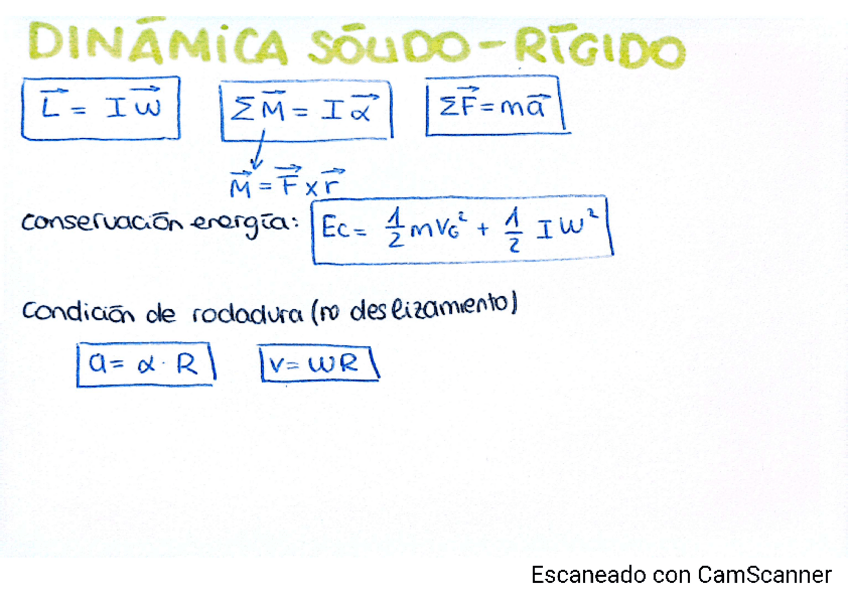 DINÁMICA SÓLIDO-RÍGIDO
L⃗ = I w⃗   Σ M⃗ = I α⃗   Σ F⃗ = m a⃗
M⃗ = F⃗ x r⃗
conservación energía: Ec = 1/2 m VG² + 1/2 I W²
Condición de rodadura (no deslizamiento)
a = α · R   v = WR
Escaneado con CamScanner